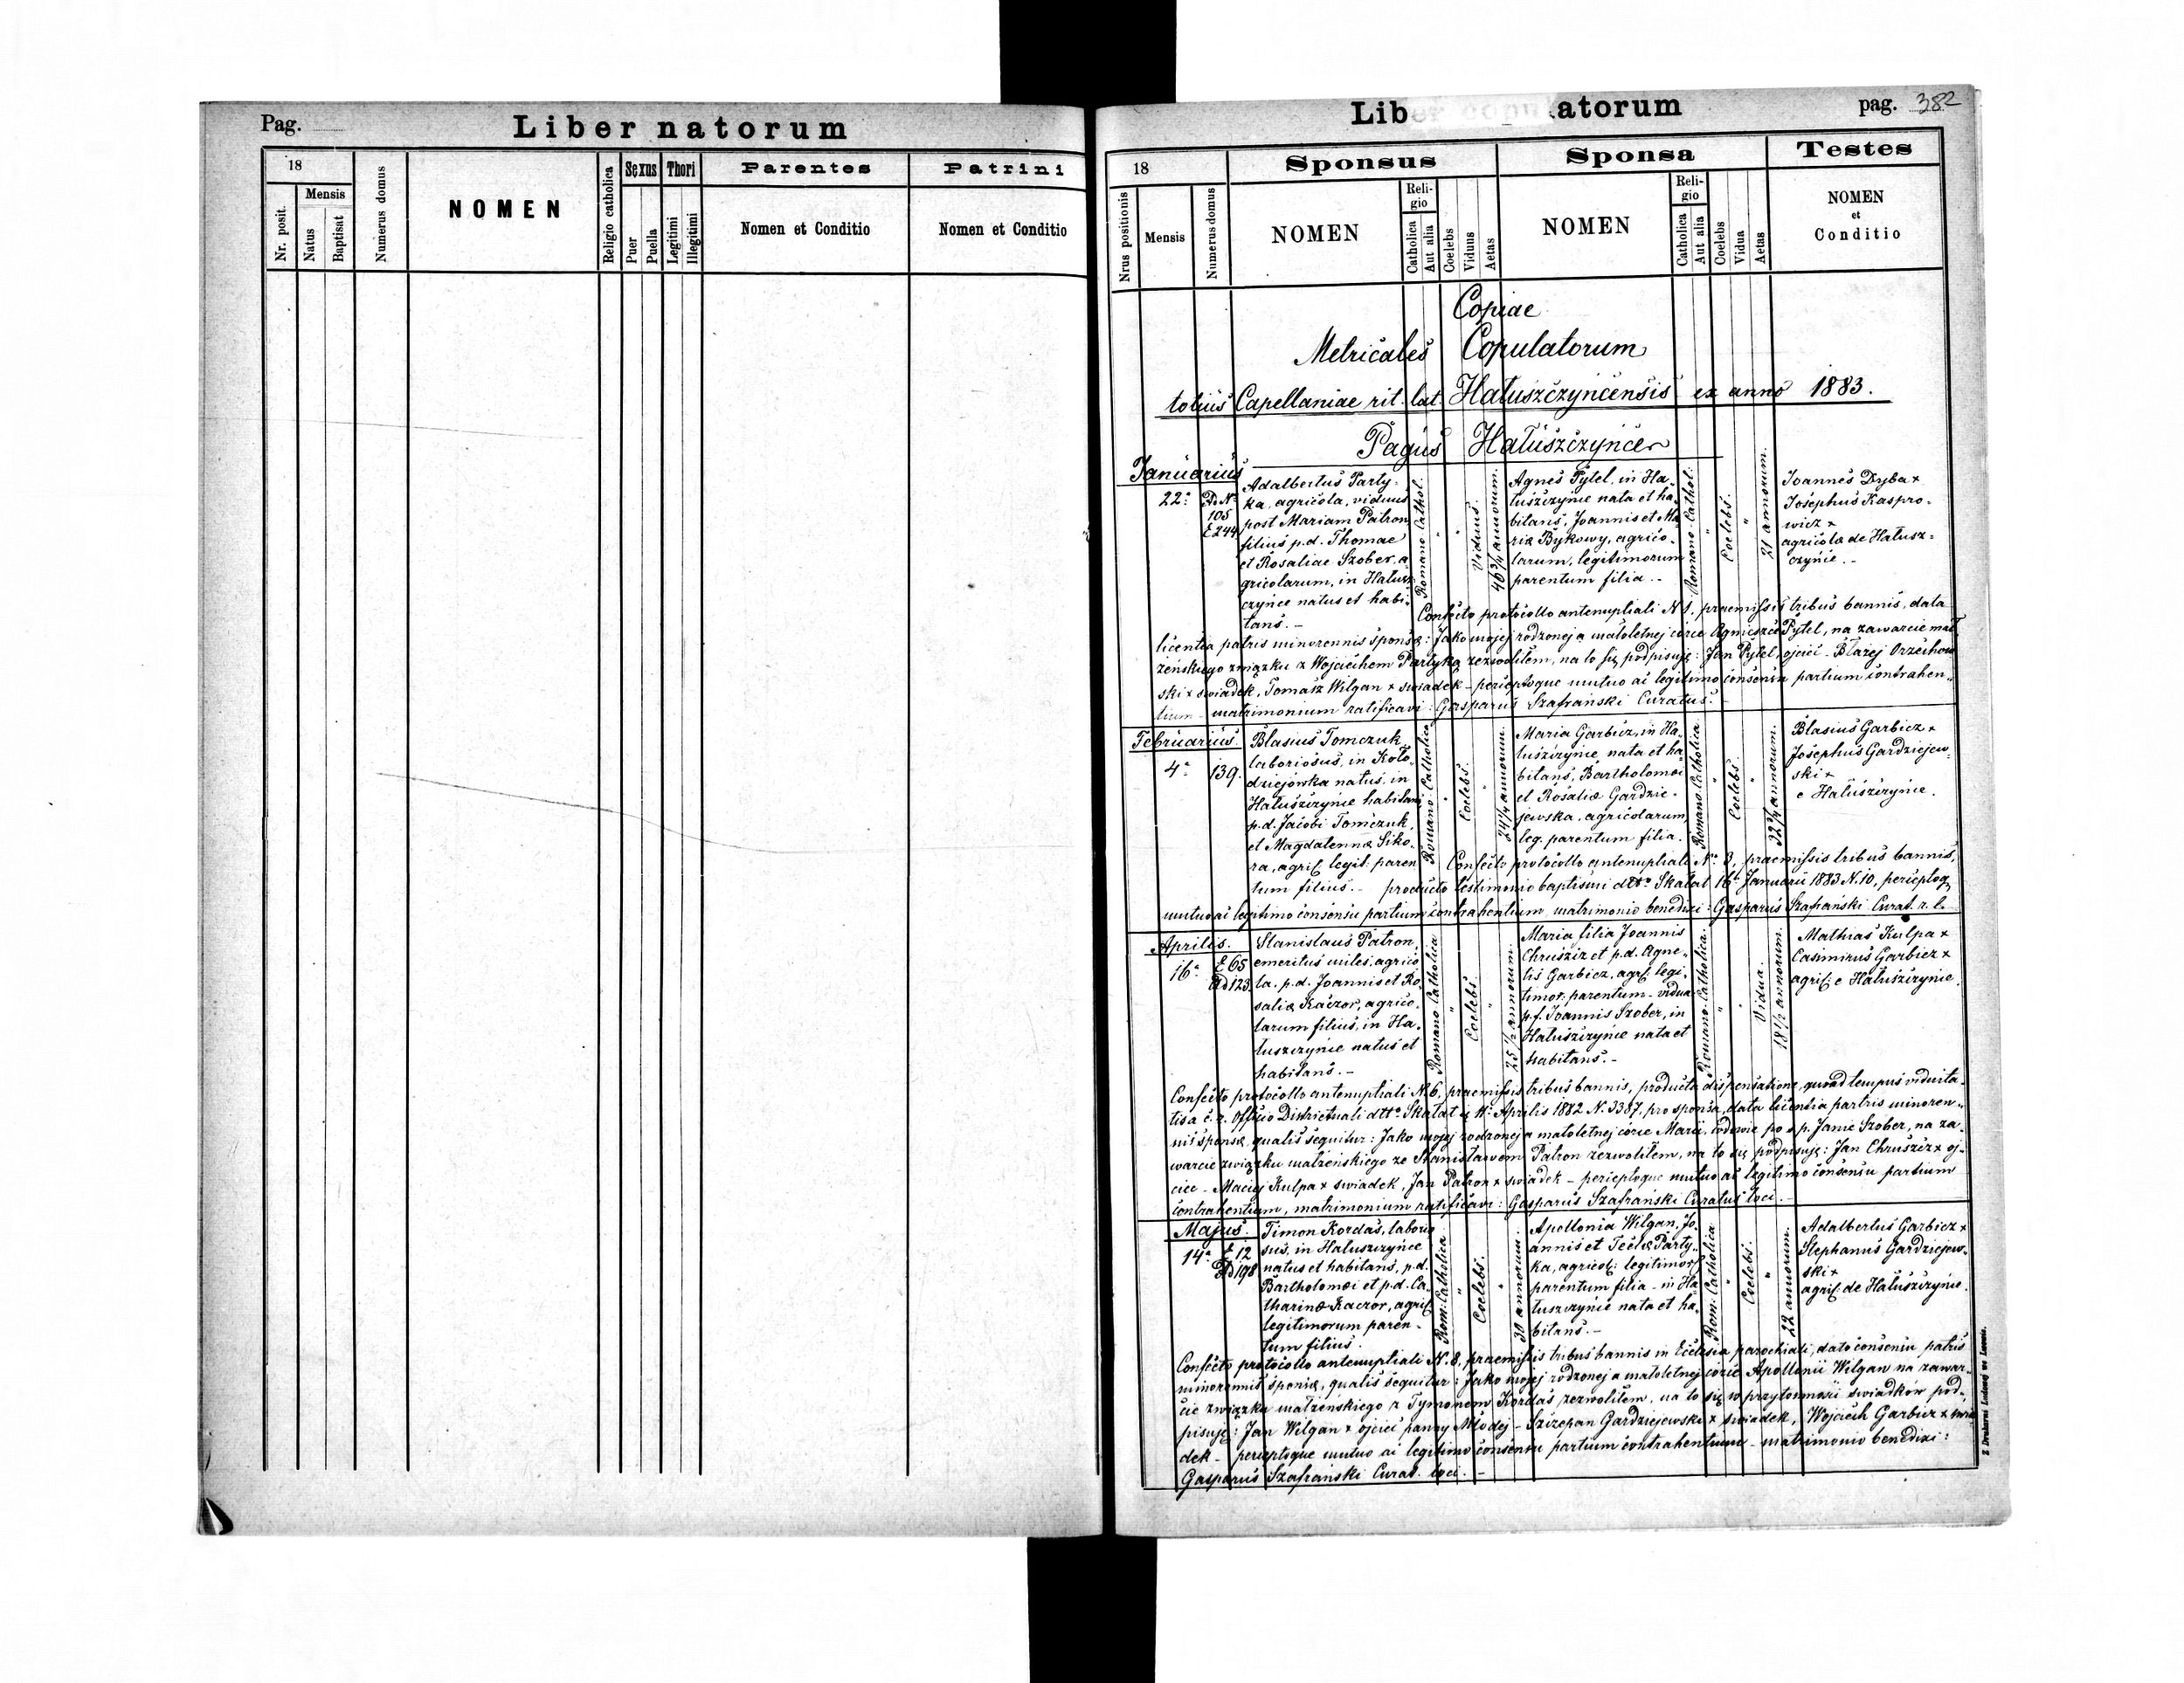 Pag.
Liber natorum
18
Mensis
Nr. posit.
Natus
Baptisat
Numerus domus
NOMEN
Religio catholica
Sexus
Puer
Puella
Thori
Legitimi
Illegitimi
Parentes
Nomen et Conditio
Patrini
Nomen et Conditio
Liber copulatorum
pag. 382
18
Nrus positionis
Mensis
Numerus domus
Sponsus
NOMEN
Reli-
gio
Catholica
Aut alia
Coelebs
Viduus
Aetas
Sponsa
NOMEN
Reli-
gio
Catholica
Aut alia
Coelebs
Vidua
Aetas
Testes
NOMEN
et
Conditio
Copiae
Metricales Copulatorum
totius Capellaniae rit. lat. Hałuszczyńcensis ex anno 1883.
Pagus Hałuszczyńce
Januarius
22a
Do No
105
E 244
Adalbertus Party-
ka, agricola, viduus
post Mariam Patron,
filius p.d. Thomae
et Rosaliae Szober, a-
gricolarum, in Hałusz-
czyńce natus et habi-
tans.-
Romano-Cathol.
"
"
Viduus.
46 3/4 annorum.
Agnes Pytel, in Ha-
łuszczyńce nata et ha-
bitans, Joannis et Ma-
riæ Bykowy, agrico-
larum, legitimorum
parentum filia.-
Romano-Cathol.
"
Coelebs.
"
21 annorum.
Joannes Dyba +
Josephus Kaspro-
wicz +
agricolæ de Hałusz-
czyńce.-
Confecto protocollo antenuptiali N 1. praemissis tribus bannis, data
licentia patris minorennis sponsæ: Jako mojej rodzonej a małoletnej córce Agnieszce Pytel, na zawarcie mał-
żeńskiego związku z Wojciechem Partyką zezwoliłem, na to się podpisuję: Jan Pytel, ojciec - Błażej Orzechow-
ski + świadek, Tomasz Wilgan + świadek - perceptoque mutuo ac legitimo consensu partium contrahen-
tium - matrimonium ratificavi: Gasparus Szafrański Curatus.
Februarius.
4a
139.
Blasius Tomczuk
laboriosus, in Koło-
dziejówka natus, in
Hałuszczyńce habitans
p.d. Jacobi Tomczuk,
et Magdalennæ Siko-
ra, agric. legit. paren-
tum filius.-
Romano-Catholica
"
Coelebs.
"
24 1/4 annorum.
Maria Garbicz, in Ha-
łuszczyńce nata et ha-
bitans, Bartholomæi
et Rosaliæ Gardzie-
jewska, agricolarum,
leg. parentum filia.
Romano-Catholica
"
Coelebs.
"
22 3/4 annorum.
Blasius Garbicz +
Josephus Gardziejew-
ski +
e Hałuszczyńce.
Confecto protocollo antenuptiali No 3, praemissis tribus bannis,
producto testimonio baptismi dtto Skałat 16a Januarii 1883 N. 10, perceptoq
mutuo ac legitimo consensu partium contrahentium matrimonio benedixi: Gasparus Szafrański Curat. r. l.
Aprilis.
16a
E 65
ad 123.
Stanislaus Patron,
emeritus miles, agrico-
la, p.d. Joannis et Ro-
saliæ Kaczor, agrico-
larum filius, in Ha-
łuszczyńce natus et
habitans.-
Romano Catholica
"
Coelebs.
"
25 1/2 annorum.
Maria filia Joannis
Chruszcz et p.d. Agne-
tis Garbicz, agr. legi-
timor. parentum - vidua
p.f. Joannis Szober, in
Hałuszczyńce nata et
habitans.-
Romano-Catholica.
"
"
Vidua.
18 1/2 annorum.
Mathias Kulpa +
Casimirus Garbicz +
agric. e Hałuszczyńce.
Confecto protocollo antenuptiali N. 6, praemissis tribus bannis, producta dispensatione, quoad tempus viduita-
tis a c. r. Officio Districtuali dtto Skałat Aprilis 1882 N. 3387, pro sponsa, data licentia patris minoren-
nis sponsæ, qualis sequitur: Jako mojej rodzonej a małoletnej córce Marii, wdowie po s.p. Janie Szober, na za-
warcie związku małżeńskiego ze Stanisławem Patron zezwoliłem, na to się podpisuję: Jan Chruszcz + oj-
ciec - Maciej Kulpa + świadek, Jan Patron + świadek - perceptoque mutuo ac legitimo consensu partium
contrahentium, matrimonium ratificavi: Gasparus Szafrański Curatus loci.-
Majus.
14a
E 12
ad 198
Timon Kordas, laborio-
sus, in Hałuszczyńce
natus et habitans, p.d.
Bartholomæi et p.d. Ca-
tharinæ Kaczor, agric.
legitimorum paren-
tum filius.
Rom-Catholica
"
Coelebs.
"
30 annorum.
Apollonia Wilgan, Jo-
annis et Teclæ Party-
ka, agricol. legitimor.
parentum filia - in Ha-
łuszczyńce nata et ha-
bitans.-
Rom. Catholica
"
Coelebs.
"
22 annorum.
Adalbertus Garbicz +
Stephanus Gardziejew-
ski +
agric. de Hałuszczyńce.
Confecto protocollo antenuptiali N. 8, praemissis tribus bannis in Ecclesia parochiali, dato consensu patris
minorennis sponsæ, qualis sequitur: Jako mojej rodzonej a małoletnej córce Apollonii Wilgan na zawar-
cie związku małżeńskiego z Tymonem Kordas zezwoliłem, na to się w przytomności świadków pod-
pisuję: Jan Wilgan + ojciec panny Młodej - Szczepan Gardziejewski + świadek, Wojciech Garbicz + świa-
dek - perceptoque mutuo ac legitimo consensu partium contrahentium - matrimonio benedixi:
Gasparus Szafrański Curat. loci.-
Z Drukarni Ludowej we Lwowie.